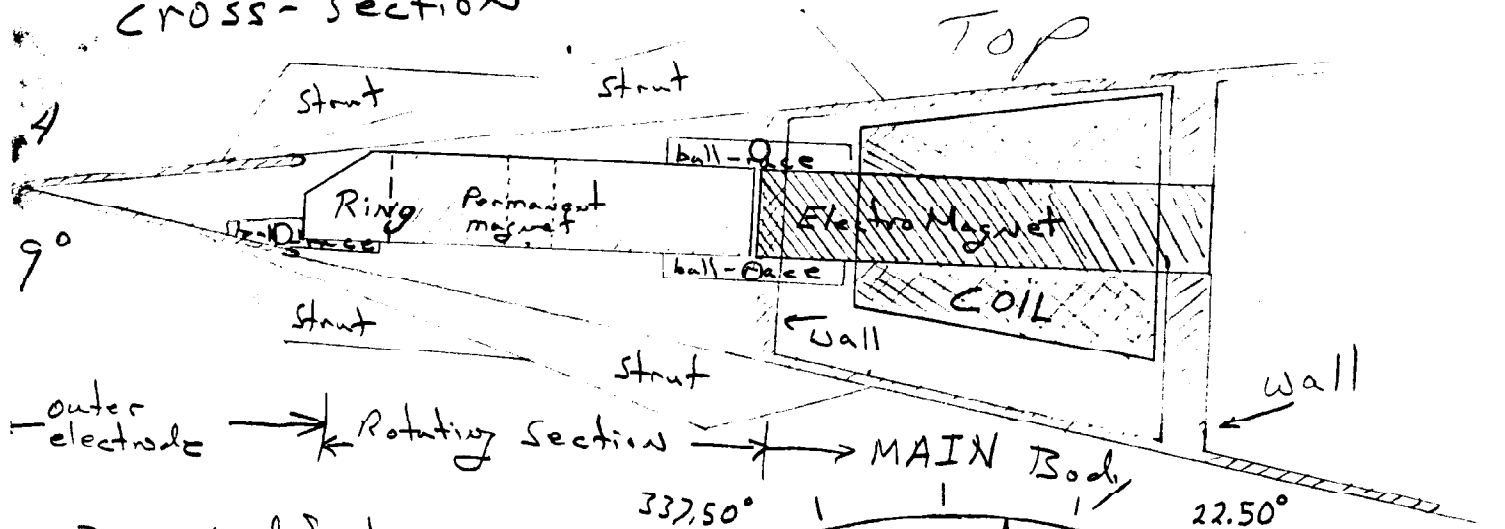 cross-section
TOP
Strut
Strut
4
ball-race
Ring
Permanent
magnet
Electro Magnet
ball-race
9°
ball-race
COIL
Strut
Wall
Strut
wall
outer
electrode
Rotating Section
MAIN Body
337.50°
22.50°